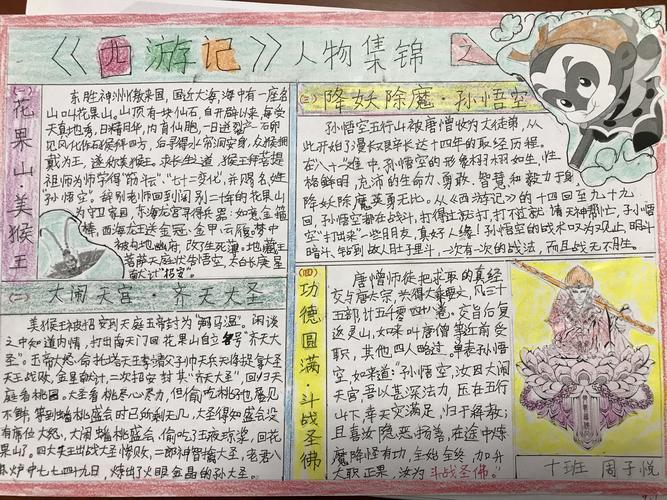 《西游记》人物集锦 之
(一)
花果山·美猴王
东胜神洲傲来国,国近大海,海中有一座名
山叫花果山。山顶有一块仙石,自开辟以来,享受
天真地秀,日精月华,内育仙胞,一日迸裂产一石卵
见风化作石猴拜四方,后寻得水帘洞安身,众猴拥
戴为王,遂称美猴王。求长生之道,猴王拜菩提
祖师为师学得"筋斗云""七十二变化",并赐名姓
孙悟空"。辞别老师回到阔别二十年的花果山
为守卫家园,东海龙宫寻得兵器:如意金箍
棒,西海龙王送金冠、金甲、云履。梦中
被勾地幽府,改了生死薄。地藏王
菩萨天庭状告悟空,太白长庚星
献计"招安"。
(二) 大闹天宫 齐天大圣
美猴王被招安到天庭玉帝封为"弼马温"。闲谈
之中知道内情,打出南天门回花果山自立号"齐天大
圣"。玉帝大怒,命托塔天王李靖父子帅天兵天将捉拿大圣
天王战败,金星献计,二次招安封其"齐天大圣",回归天
庭看桃园。大圣看桃尽心尽力,但偷吃桃好也屡见
不鲜,等到蟠桃盛会时已所剩无几,大圣得知盛会没
有席位大怒,大闹蟠桃盛会,偷吃了玉液琼浆,回花
果山了。四大天王出战大圣惨败,二郎神智擒大圣,老君八
卦炉中七七四十九日,炼出了火眼金晶的孙大圣。
(三) 降妖除魔·孙悟空
孙悟空五行山被唐僧收为大徒弟,从
此开始了漫长艰辛长达十四年的取经历程。
在八十一难中,孙悟空的形象栩栩如生,性
格鲜明,充沛的生命力,勇敢、智慧和毅力于身
降妖除魔英勇无比。从《西游记》的十四回至九十九
回,孙悟空都在战斗,打得过死打,打不过就请天神帮忙,子小悟
空"打出来"一些朋友,真好人缘!孙悟空的战术叹为观止,明斗
暗斗、钻到敌人肚子里斗,一次有一次的战法,而且战无不胜。
(四)
功德圆满·斗战圣佛
唐僧师徒把求取的真经
交与唐太宗,共得大乘要文,凡三十
五部计五千零四十卷。交旨后复
返灵山,如来叫唐僧等近前受
职,其他四人略过。单表孙悟
空,如来道:"孙悟空,汝因大闹
天宫,吾以甚深法力,压在五行
山下,幸天灾满足,归于释教;
且喜汝隐恶扬善,在途中炼
魔降怪有功,全始全终,加升
大职正果,汝为斗战圣佛。"
十班 周子悦